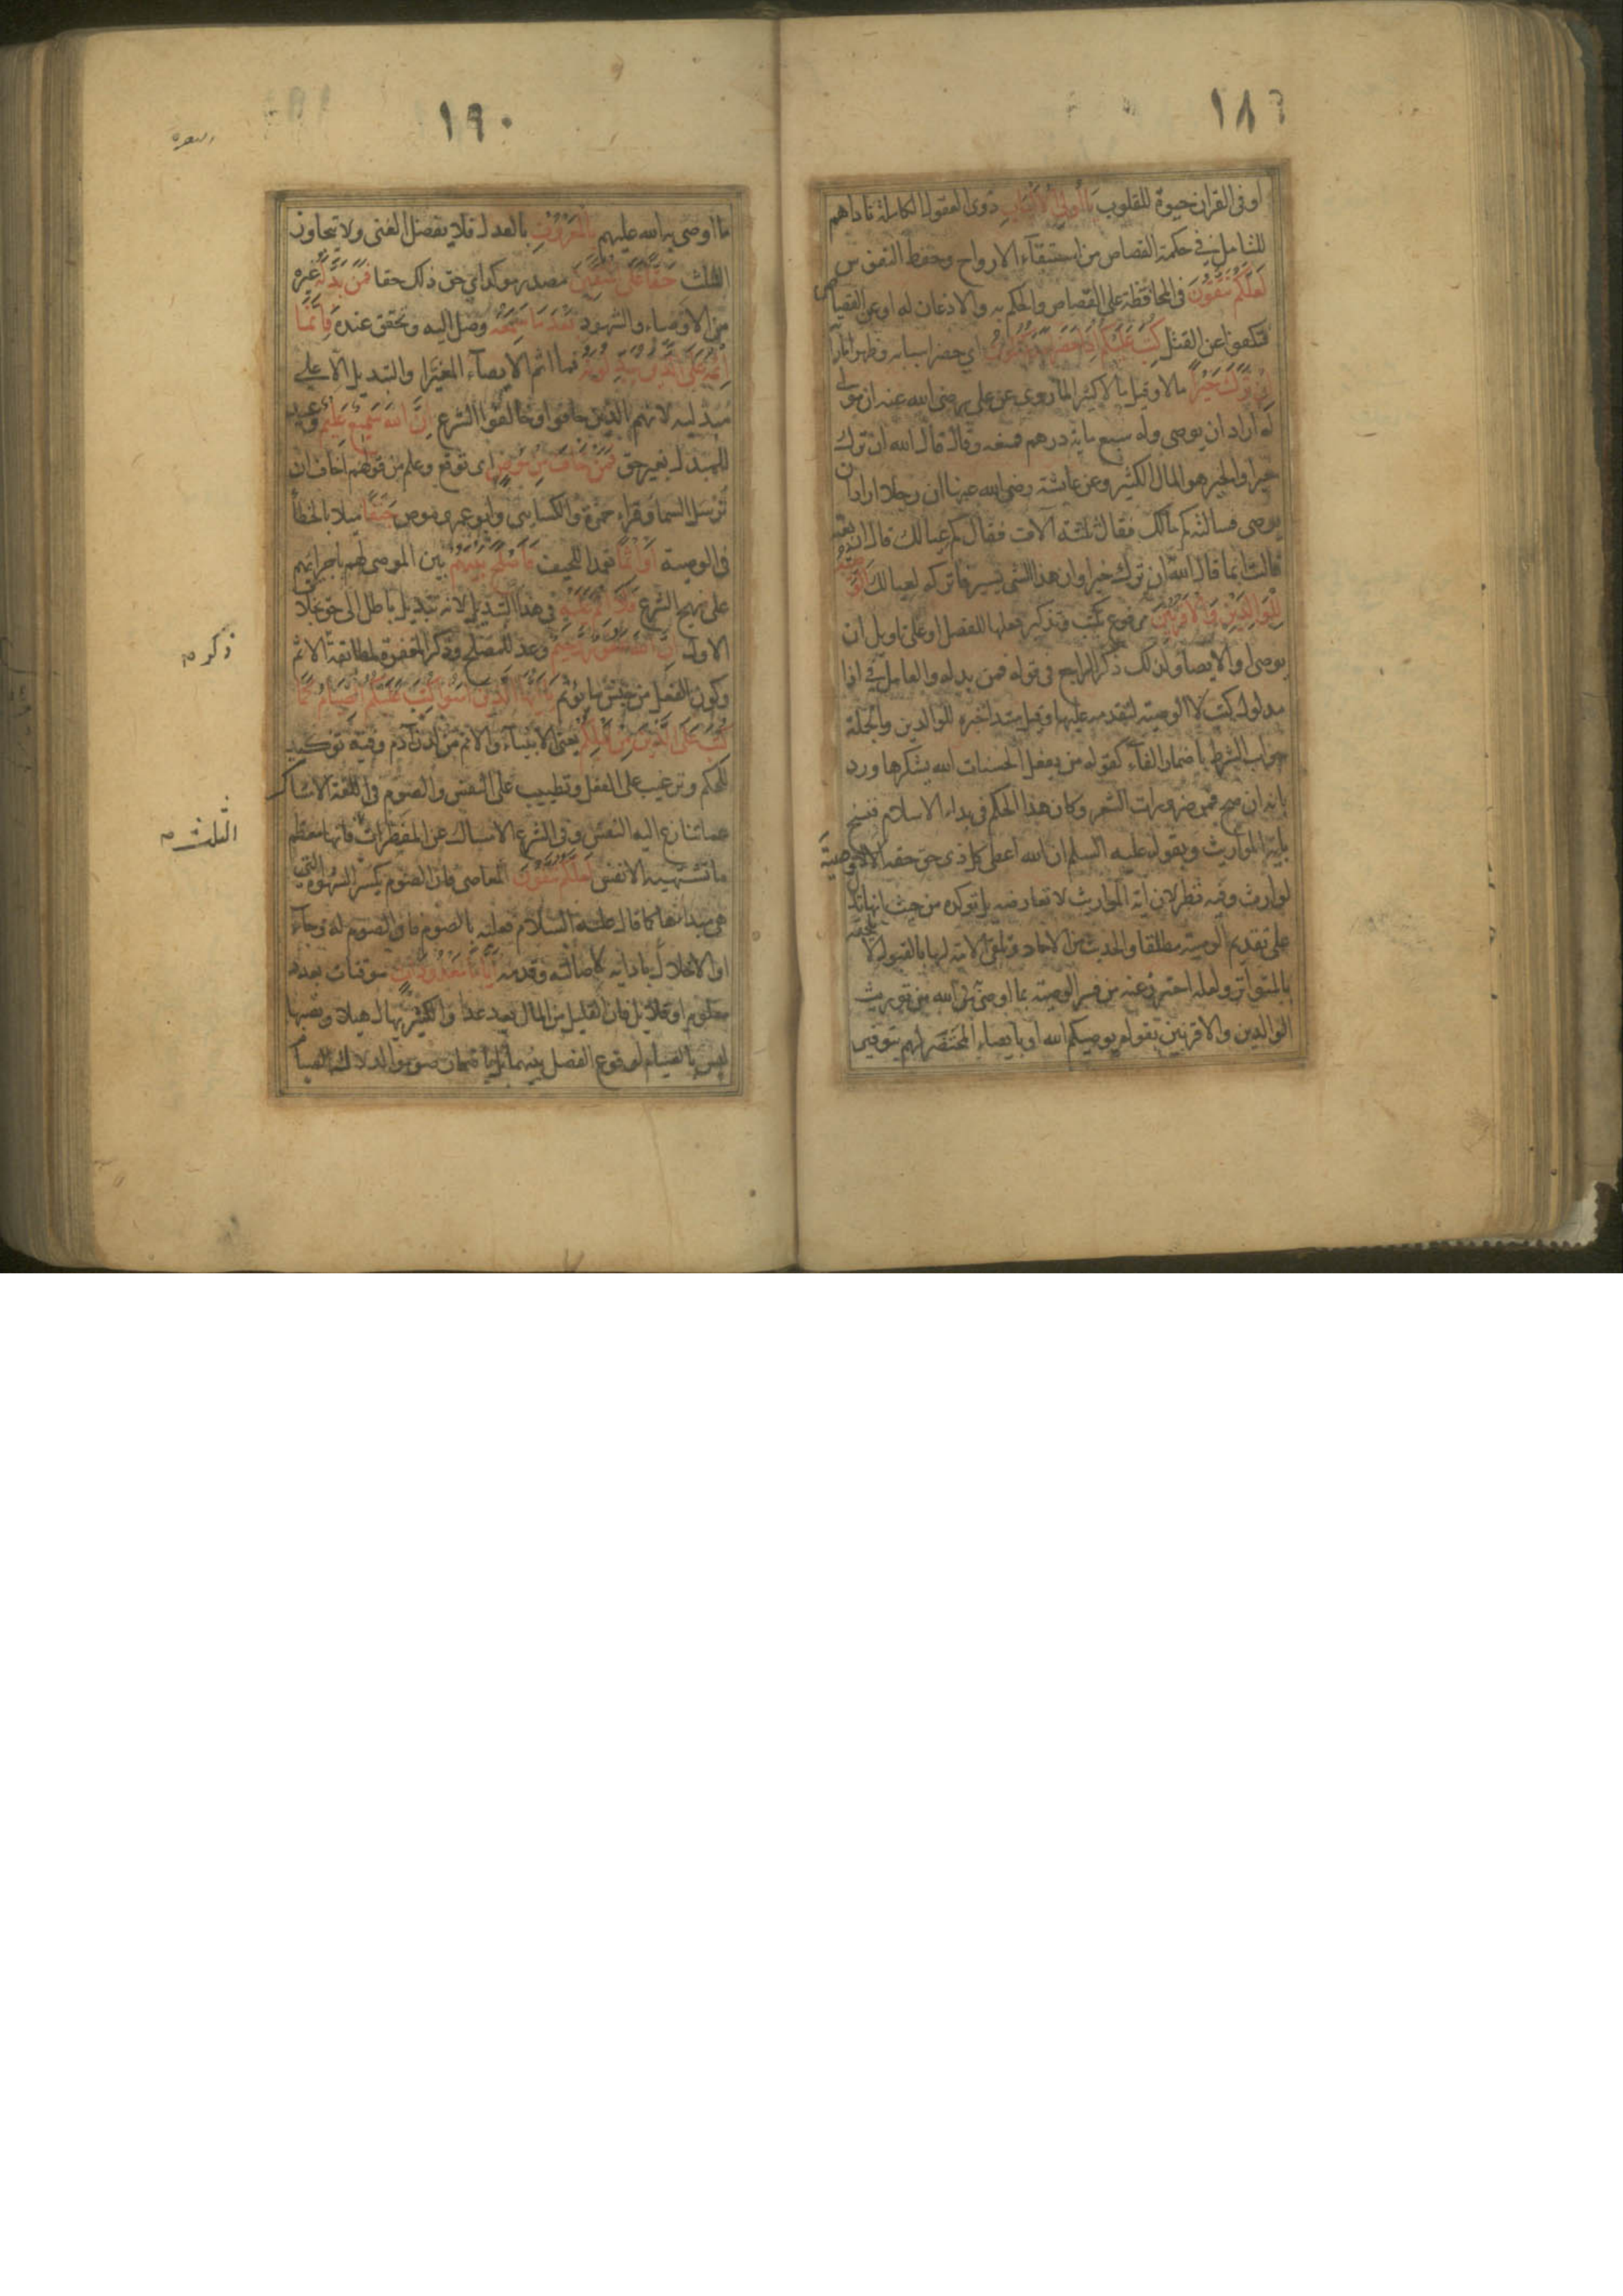 ١٨٩
او فى القران حيوة للقلوب يا اولى الالباب ذوى العقول الكاملة ناداهم
للتامل فى حكمة القصاص من استبقآء الارواح وحفظ النفوس
لعلكم تتقون فى المحافظة على القصاص والحكم به والاذعان له او عن القصاص
فتكفوا عن القتل كتب عليكم اذا حضر احدكم الموت اى حضر اسبابه وظهر اماراته
ان ترك خيرا مالا وقيل مالا كثيرا لما روى عن على رضى الله عنه ان مولى
له اراد ان يوصى وله سبع ماية درهم فمنعه وقال قال الله ان ترك
خيرا والخير هو المال الكثير وعن عائشة رضى الله عنها ان رجلا اراد ان
يوصى فسالته كم مالك فقال ثلثة آلاف فقال كم عيالك قال اربعة
قالت انما قال الله ان ترك خيرا وان هذا لشى يسير فاتركه لعيالك الوصية
للوالدين والاقربين مرفوع بكتب وتذكير فعلها للفصل او على تاويل ان
يوصى او الايصاء ولذلك ذكر الراجع فى قوله فمن بدله والعامل فى اذا
مدلول كتب لا الوصية لتقدمه عليها وقيل مبتدا خبره للوالدين والجملة
جواب الشرط باضمار الفآء كقوله من يفعل الحسنات الله يشكرها ورد
بانه ان صح فمن ضرورات الشعر وكان هذا الحكم فى بداء الاسلام فنسخ
باية المواريث وبقوله عليه السلم ان الله اعطى كل ذى حق حقه الا لا وصية
لوارث وفيه نظر لان اية المواريث لا تعارضه بل توكده من حيث انها تدل
على تقديم الوصية مطلقا والحديث من الاحاد وتلقى الامة لها بالقبول لا يلحقه
بالمتواتر ولعله احترز عنه من فسر الوصية بما اوصى به الله من توريث
الوالدين والاقربين بقوله يوصيكم الله او بايصاء المحتضر لهم بتوفير
١٩٠
البقره
ما اوصى به الله عليهم بالمعروف بالعدل فلا يفضل الغنى ولا يتجاوز
الثلث حقا على المتقين مصدر موكد اى حق ذلك حقا فمن بدله غيره
من الاوصياء والشهود بعد ما سمعه وصل اليه وتحقق عنده فانما
اثمه على الذين يبدلونه فما اثم الايصآء المغير او التبديل الا على
مبدليه لانهم الذين خافوا وخالفوا الشرع ان الله سميع عليم وعيد
للمبدل بغير حق فمن خاف من موص اى توقع وعلم من قولهم اخاف ان
ترسل السما وقراء حمزة والكسايى وابو عمرو موص جنفا ميلا بالخطأ
فى الوصية او اثما تعمدا للحيف فاصلح بينهم بين الموصى لهم باجرائهم
على نهج الشرع فلا اثم عليه فى هذا التبديل لانه تبديل باطل الى حق بخلاف
الاول ان الله غفور رحيم وعد للمصلح وذكر المغفرة لمطابقة الاثم
وكون الفعل من جنس ما يؤثم يا ايها الذين امنوا كتب عليكم الصيام كما
كتب على الذين من قبلكم يعنى الانبيآء والامم من لدن آدم وفيه توكيد
للحكم وترغيب على الفعل وتطييب على النفس والصوم فى اللغة الامساك
عما تنازع اليه النفس وفى الشرع الامساك عن المفطرات فانها معظم
ما تشتهيه الانفس لعلكم تتقون المعاصى فان الصوم يكسر الشهوة التى
هى مبداءها كما قال عليه السلام فعليه بالصوم فان الصوم له وجآء
او الاخلال بادايه لاصالته وقدمه اياما معدودات موقتات بعدد
معلوم او قلائل فان القليل من المال يعد عدا والكثير يهال هيلا ونصبها
ليس بالصيام لوقوع الفصل بينهما بل باضمار صوموا لدلالة الصيام
ذكره
الثلث